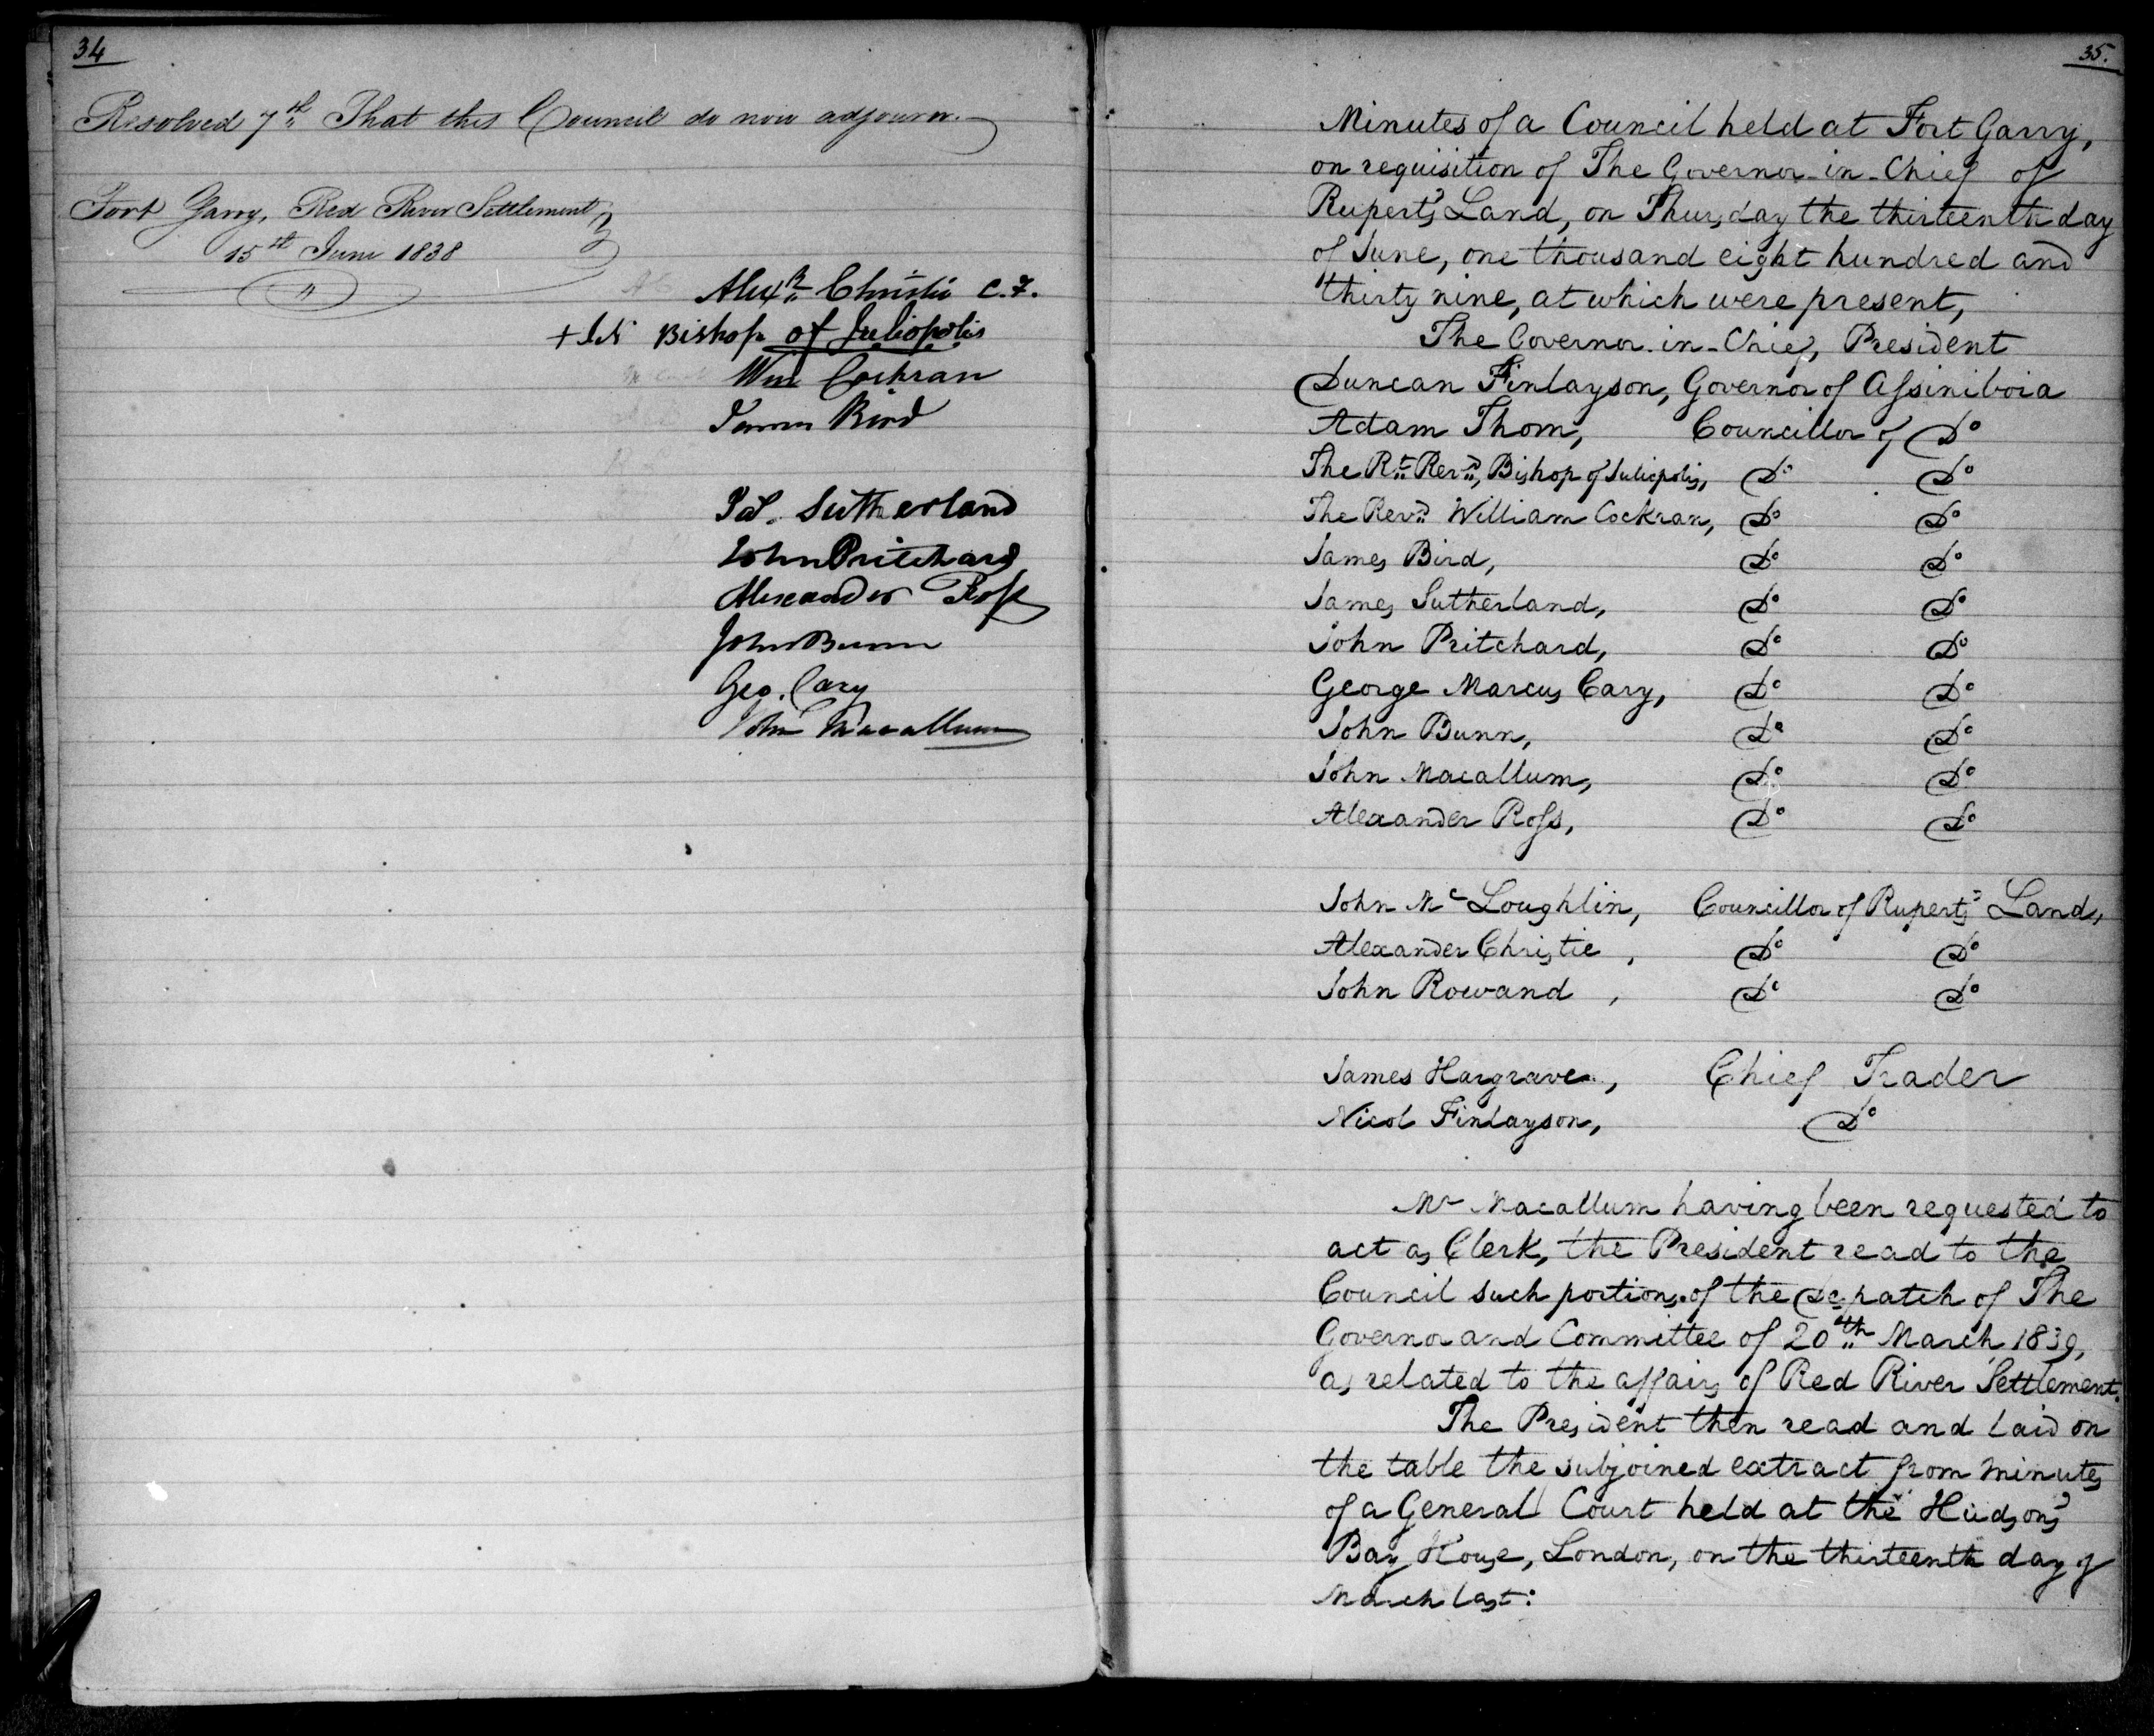 34
Resolved 7th That this Council do now adjourn.
Fort Garry, Red River Settlement
15th June 1838
Alexr Christie C.F.
+ J.N Bishop of Juliopolis
Wm Cockran
James Bird
Jas. Sutherland
John Pritchard
Alexander Ross
John Bunn
Geo. Cary
John Macallum
35.
Minutes of a Council held at Fort Garry,
on requisition of The Governor-in-Chief of
Rupert's Land, on Thursday the thirteenth day
of June, one thousand eight hundred and
thirty nine, at which were present,
The Governor-in-Chief, President
Duncan Finlayson, Governor of Assiniboia
Adam Thom, Councillor of Do
The Rt. Revd., Bishop of Juliopolis, Do Do
The Revd. William Cockran, Do Do
James Bird, Do Do
James Sutherland, Do Do
John Pritchard, Do Do
George Marcus Cary, Do Do
John Bunn, Do Do
John Macallum, Do Do
Alexander Ross, Do Do
John McLoughlin, Councillor of Rupert's Land,
Alexander Christie, Do Do
John Rowand, Do Do
James Hargrave, Chief Trader
Nicol Finlayson, Do
Mr Macallum having been requested to
act as Clerk, the President read to the
Council such portions of the Despatch of The
Governor and Committee of 20th March, 1839,
as related to the affairs of Red River Settlement.
The President then read and laid on
the table the subjoined extract from minutes
of a General Court held at the Hudson's
Bay House, London, on the thirteenth day of
March last: